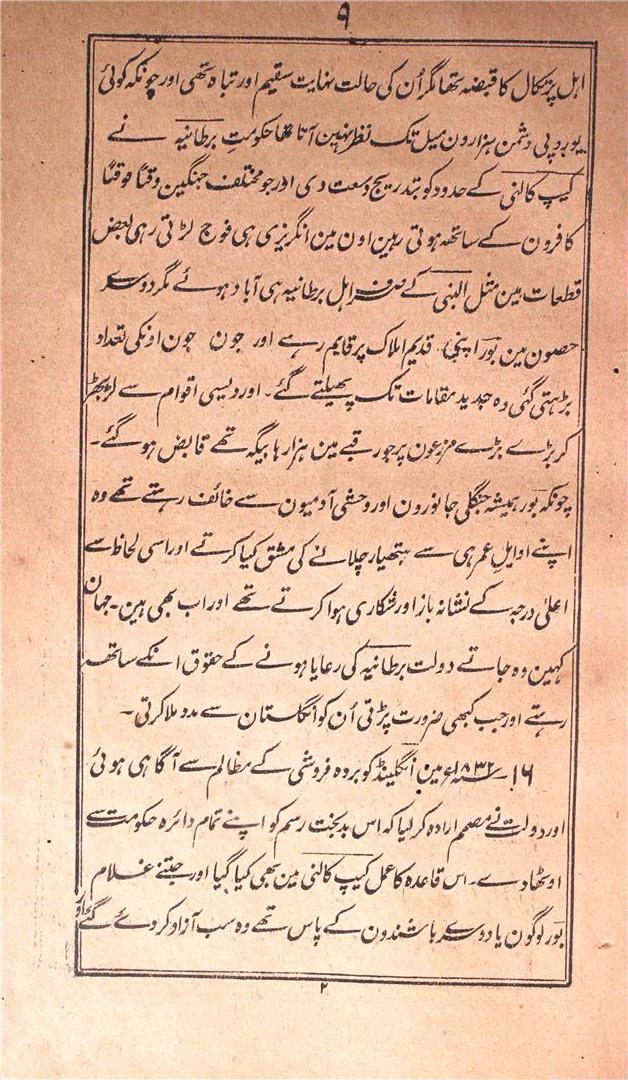 ۹
اہل پرتگال کا قبضہ تھا مگر اُن کی حالت نہایت سقیم اور تباہ تھی اور چونکہ کوئی
یوروپی دشمن ہزارون میل تک نظر نہین آتا تھا حکومتِ برطانیہ نے
کیپ کالنی کے حدود کو بتدریج وسعت دی اور جو مختلف جنگین وقتًا فوقتًا
کافرون کے ساتھ ہوتی رہین اون مین انگریزی ہی فوج لڑتی رہی بعض
قطعات مین مثل البنی کے صرف اہل برطانیہ ہی آباد ہوئے مگر دوسرے
حصون مین بور اپنی قدیم املاک پر قایم رہے اور جون جون اونکی تعداد
بڑہتی گئی وہ جدید مقامات تک پھیلتے گئے۔ اور دیسی اقوام سے لڑ بھڑ
کر بڑے بڑے مزرعون پر جو رقبے مین ہزارہا بیگہ تھے قابض ہو گئے۔
چونکہ بور ہمیشہ جنگلی جانورون اور وحشی آدمیون سے خائف رہتے تھے وہ
اپنے اوایل عمر ہی سے ہتھیار چلانے کی مشق کیا کرتے اور اسی لحاظ سے
اعلیٰ درجہ کے نشانہ باز اور شکاری ہوا کرتے تھے اور اب بھی ہین۔ جہان
کہین وہ جاتے دولت برطانیہ کی رعایا ہونے کے حقوق انکے ساتھ
رہتے اور جب کبھی ضرورت پڑتی اُن کو انگلستان سے مدد ملا کرتی۔
۱۶۔ ۱۸۳۲ء مین انگلینڈ کو بردہ فروشی کے مظالم سے آگاہی ہوئی
اور دولت نے مصمم ارادہ کر لیا کہ اس بدبخت رسم کو اپنے تمام دائرہ حکومت سے
اوٹھا دے۔ اس قاعدہ کا عمل کیپ کالنی مین بھی کیا گیا اور جتنے غلام
بور لوگون یا دوسرے باشندون کے پاس تھے وہ سب آزاد کر دئے گئے اور
۲